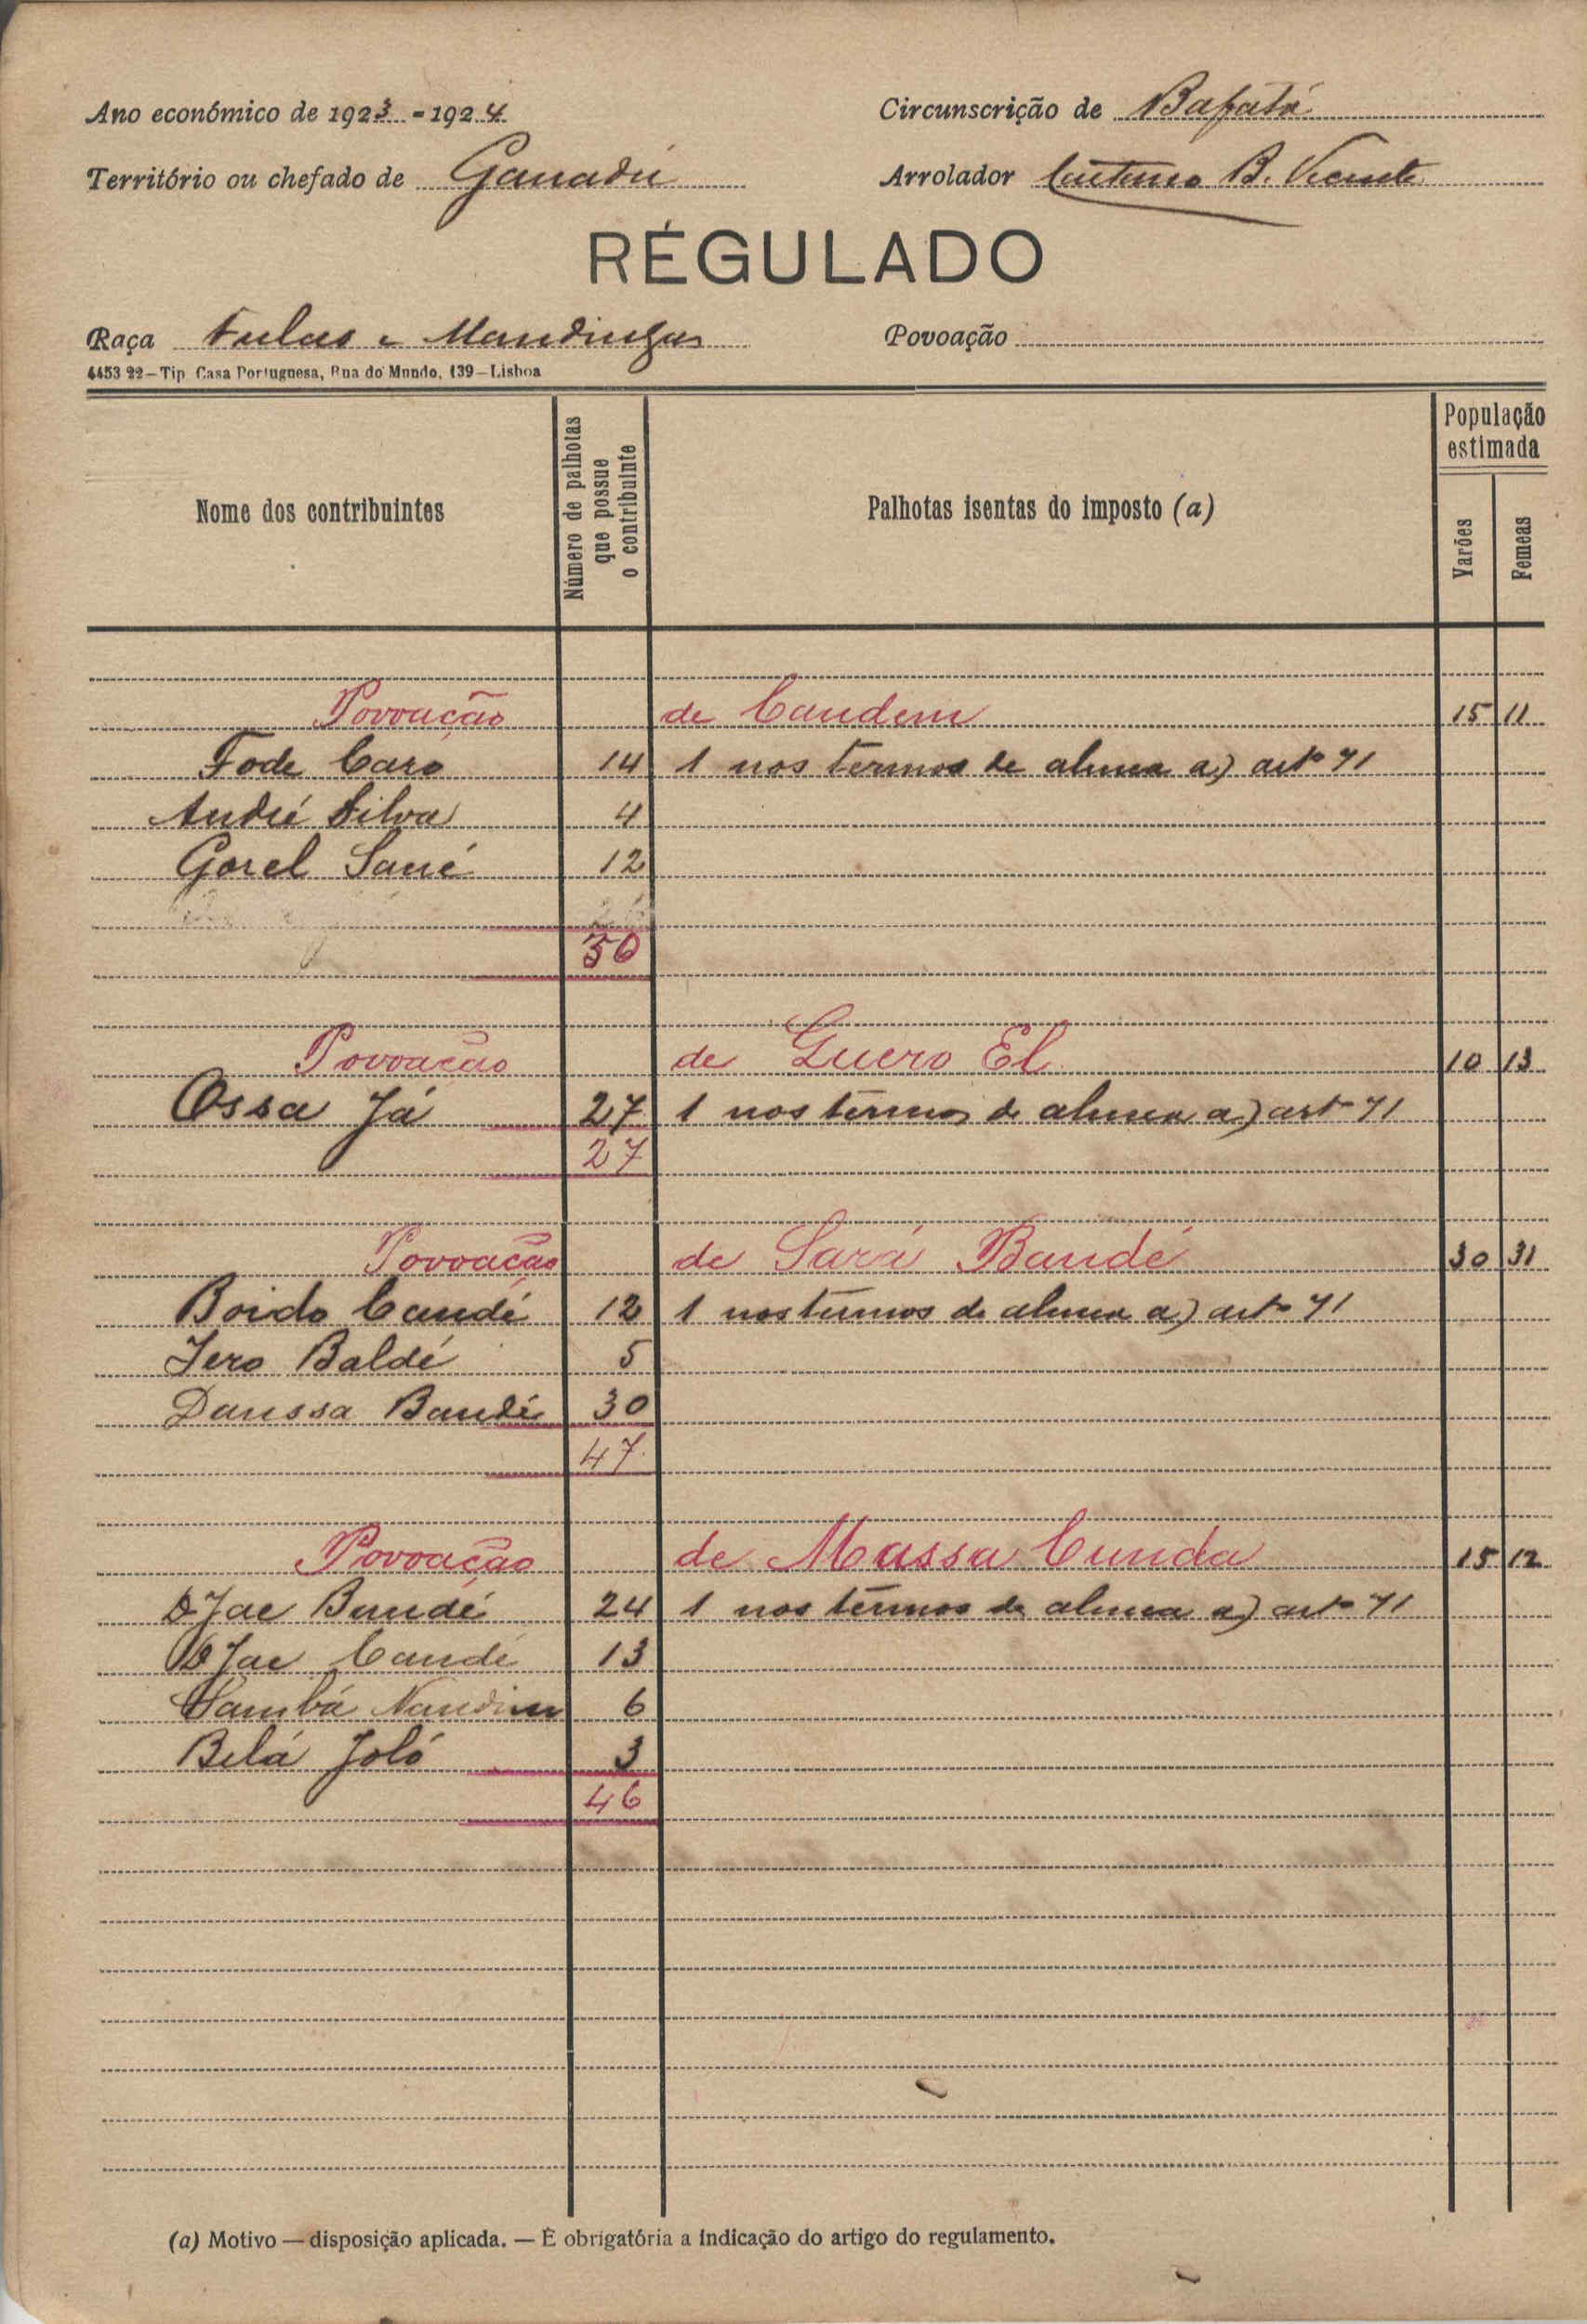 Ano económico de 1923-1924 Circunscrição de Bafatá
Território ou chefado de Ganadú Arrolador Caetano B. Vicente
RÉGULADO
Raça Fulas e Mandingas Povoação
4453 22—Tip. Casa Portuguesa, Rua do Mundo, 139—Lisboa
Nome dos contribuintes
Número de palhotas que possue o contribuinte
Palhotas isentas do imposto (a)
População estimada
Varões
Femeas
Povoação de Candem 15 11
Fode Caró 14 1 nos termos de alinea a) artº 71
André Silva 4
Gorel Sané 12
30
Povoação de Guero El 10 13
Ossa Já 27 1 nos termos de alinea a) artº 71
27
Povoação de Sará Bandé 30 31
Boido Candé 12 1 nos termos de alinea a) artº 71
Jero Baldé 5
Danssa Bandé 30
47
Povoação de Massa Cunda 15 12
DJae Bandé 24 1 nos termos de alinea a) artº 71
DJae Candé 13
Sambá 6
Belá Joló 3
46
(a) Motivo — disposição aplicada. — É obrigatória a indicação do artigo do regulamento.